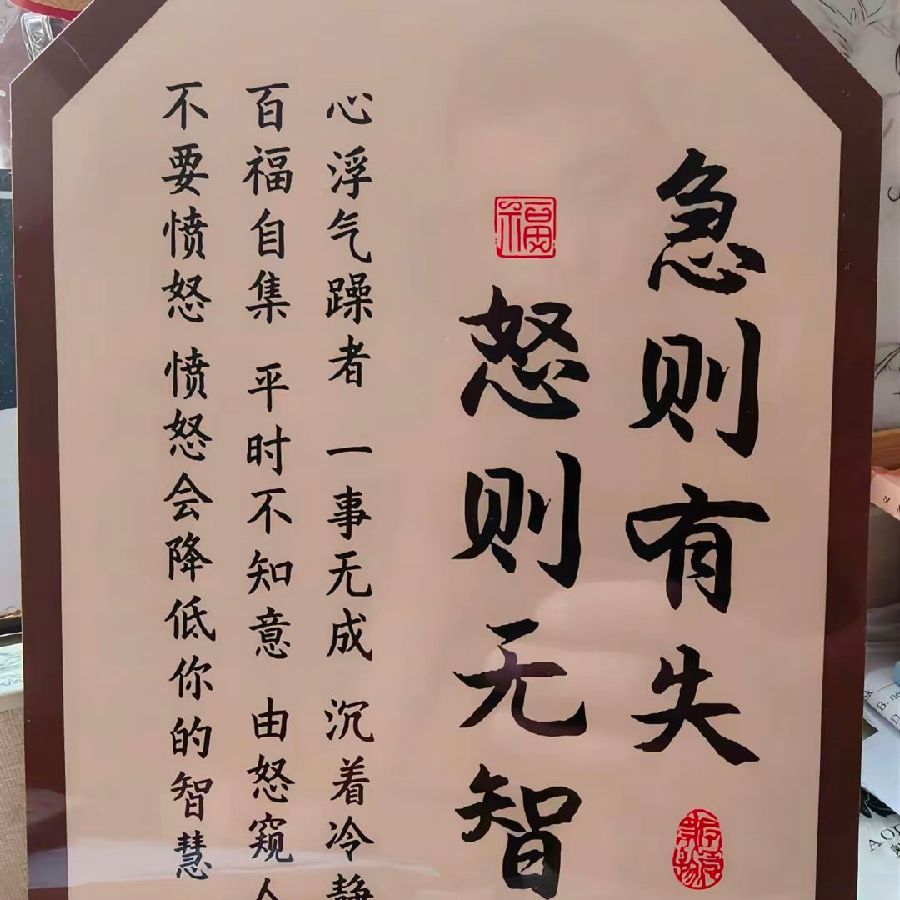 急则有失
怒则无智
福
心浮气躁者 一事无成 沉着冷静
百福自集 平时不知意 由怒窥人
不要愤怒 愤怒会降低你的智慧